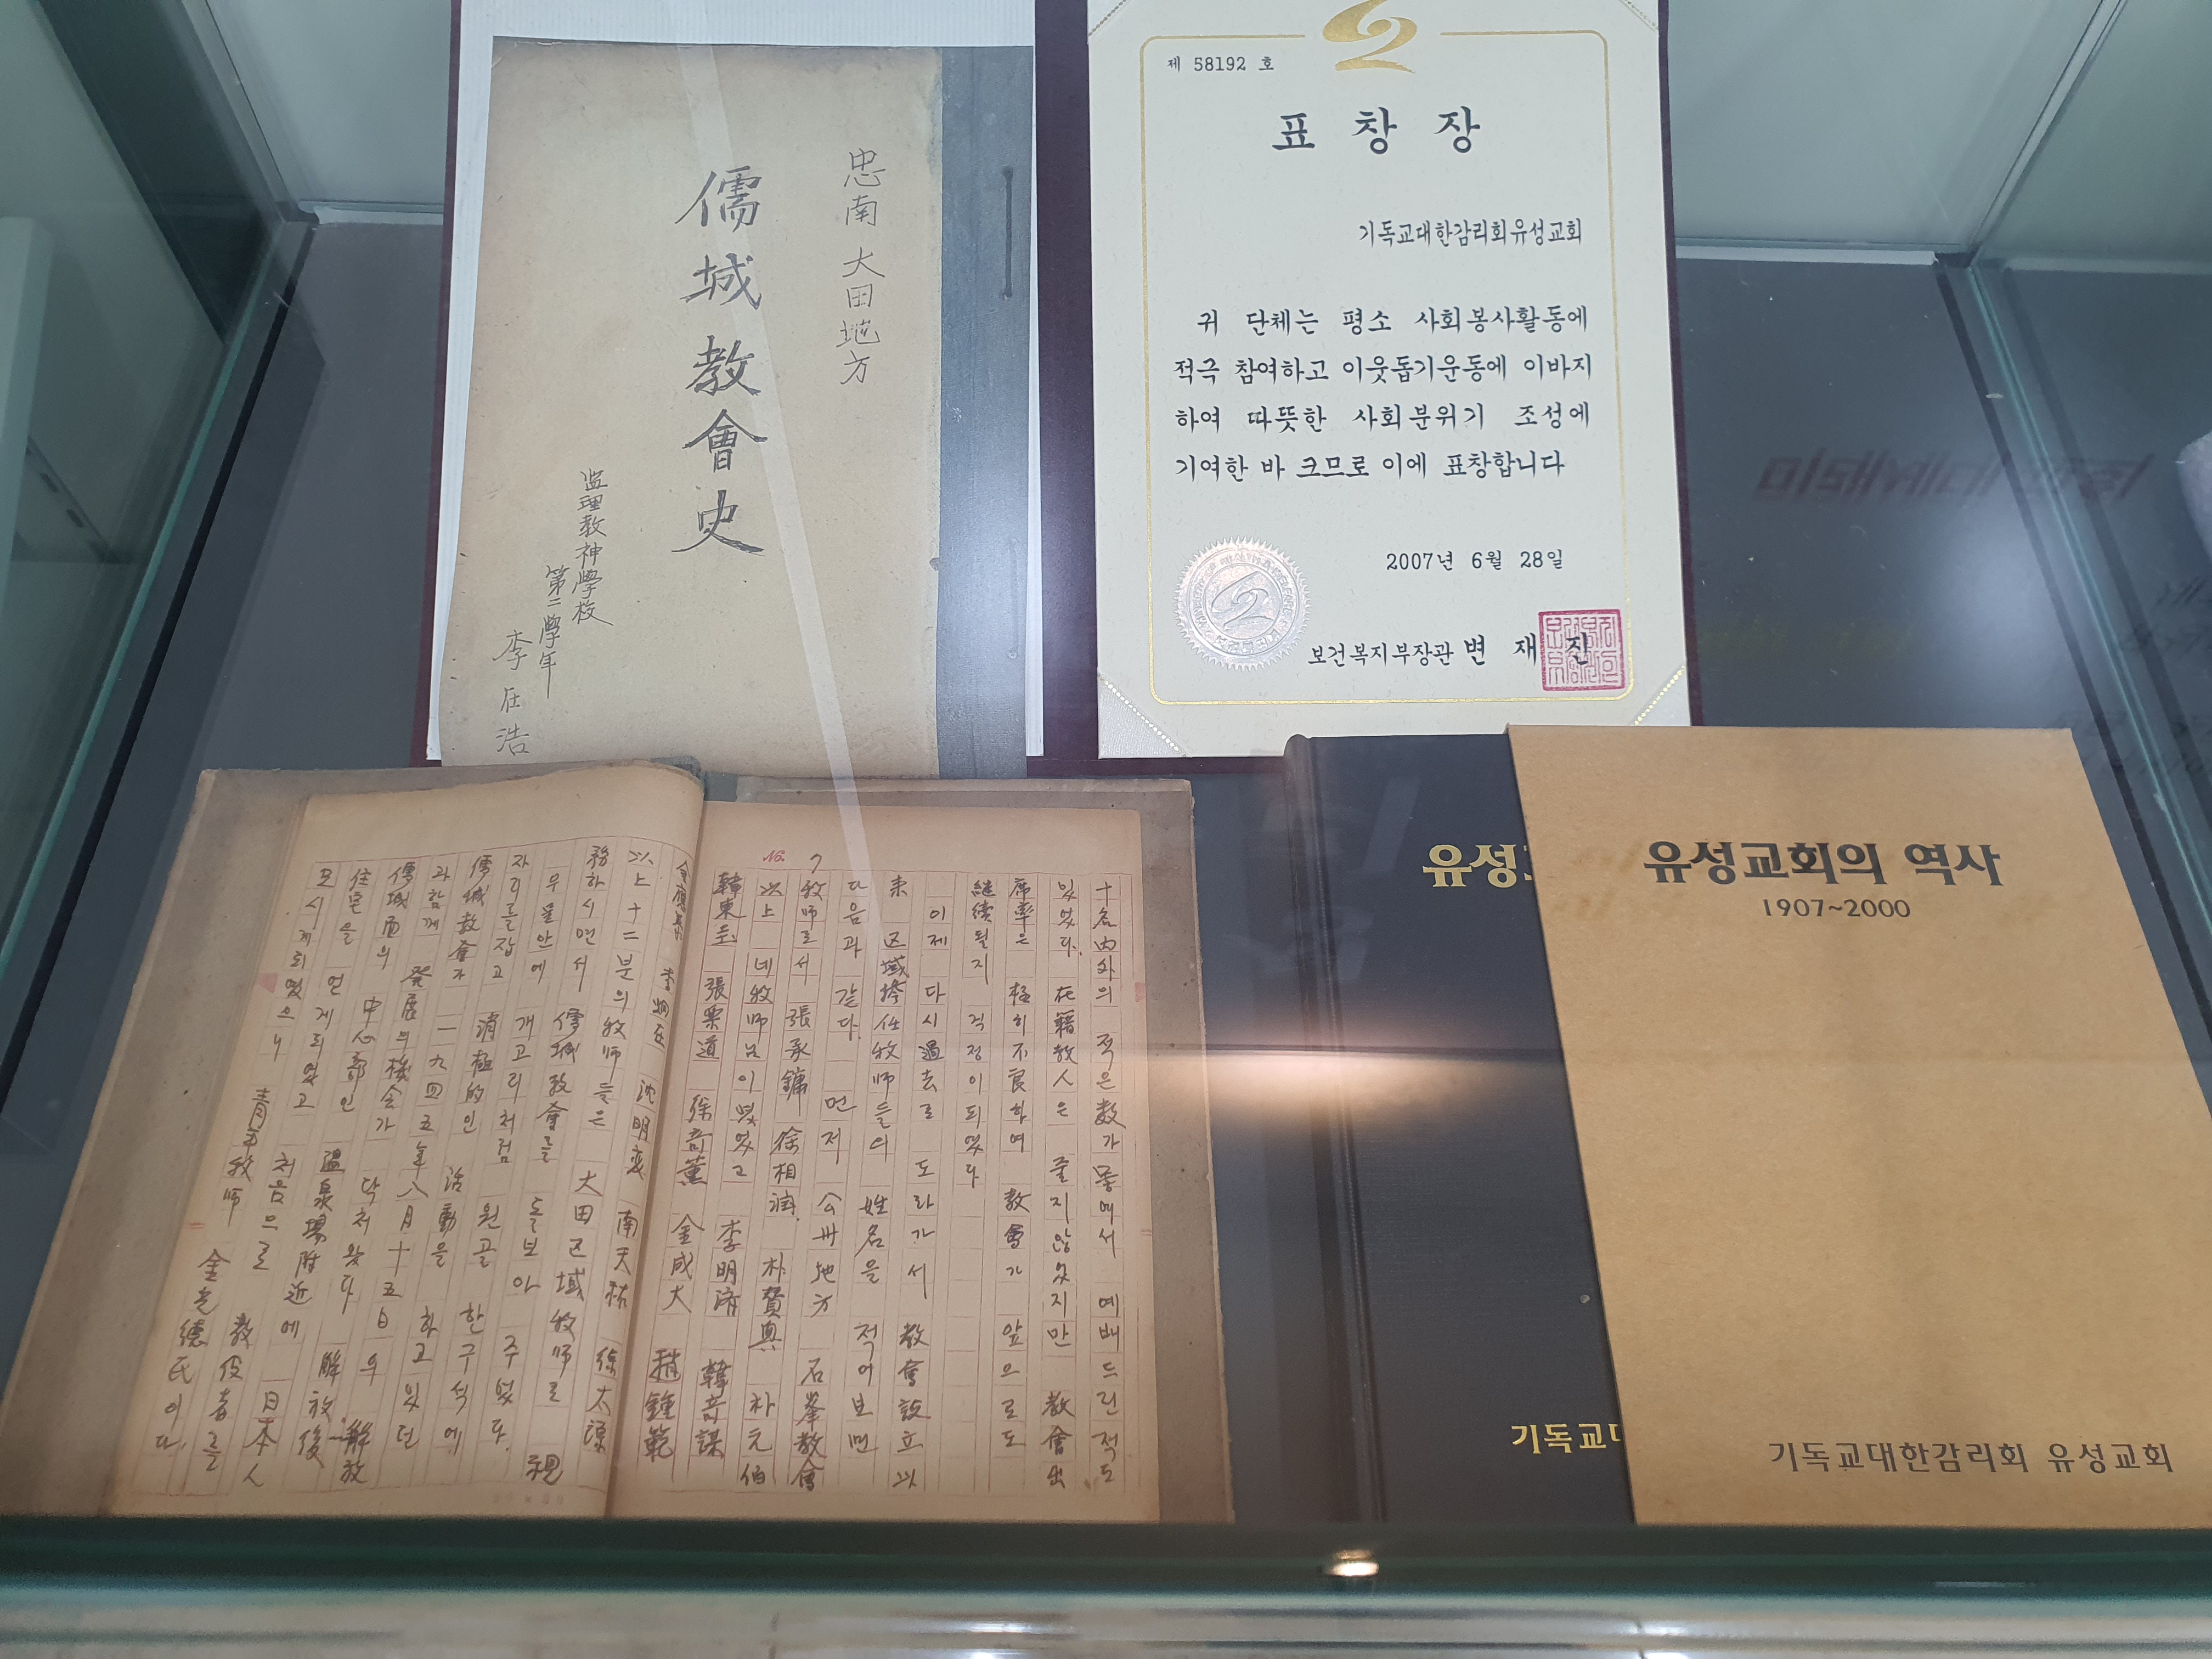 忠南 大田地方
儒城教會史
监理教神學校
第二學年
李在浩
제 58192 호
표 창 장
기독교대한감리회유성교회
귀 단체는 평소 사회봉사활동에
적극 참여하고 이웃돕기운동에 이바지
하여 따뜻한 사회분위기 조성에
기여한 바 크므로 이에 표창합니다
2007년 6월 28일
보건복지부장관 변 재 진
No. 7
十名內外의 적은 数가 몽여서 예배드린 적도
있었다. 在籍教人은 줄지않었지만 教會出
席率은 極히 不良하여 教會가 앞으로도
継続될지 걱정이 되였다
이제 다시 過去로 도라가서 教會設立以
来 区域擔任牧師들의 姓名을 적어보면
다음과 같다. 먼저 公州地方 石峯教會
牧師로서 張承鏞 徐相潤. 朴賛興 朴元伯
以上 네 牧師님이였었고 李明濟 韓
韓東 張栗道 徐 薰 金成大 鍾範
李 沈明燮 南天祐 徐太源
以上 十二 분의 牧師들은 大田区域牧師로 視
務하시면서 儒城教會를 돌보아 주었다.
우물안에 개고리처럼 왼골 한구석에
자리를 잡고 消極的인 活動을 하고 있던
儒城教會가 一九四五年八月十五日의 解放
과 함께 發展의 機会가 닥처왔다. 解放後
儒城面의 中心部인 溫泉場附近에 日本人
住宅을 얻게되였고 처음으로 教役者를
모시게되였으니 青 牧師 金 德氏이다.
유성
기독교대
유성교회의 역사
1907~2000
기독교대한감리회 유성교회